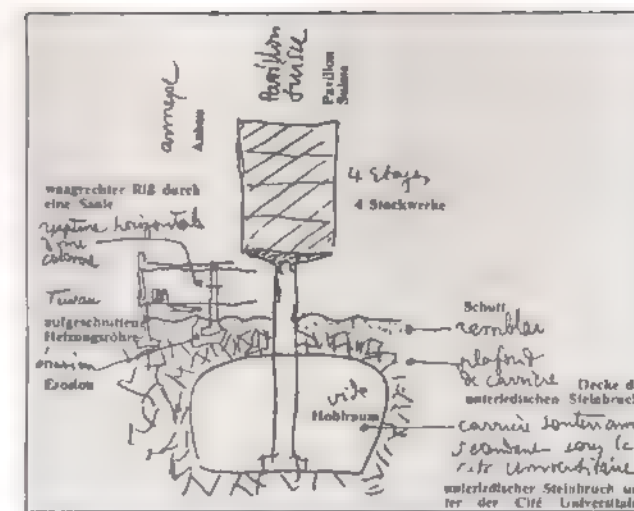 annexe
Anbau
Pavillon
suisse
Pavillon
Suisse
waagrechter Riß durch
eine Säule
rupture horizontale
d'une
colonne
4 Etages
4 Stockwerke
Tuyau
aufgeschnittene
Heizungsröhre
érosion
Erosion
Schutt
remblai
plafond
de carrière
Decke d
unterirdischen Steinbruch
vide
Hohlraum
carrière souterraine
s'étendant sous la
cité universitaire
unterirdischer Steinbruch un
ter der Cité Universitaire